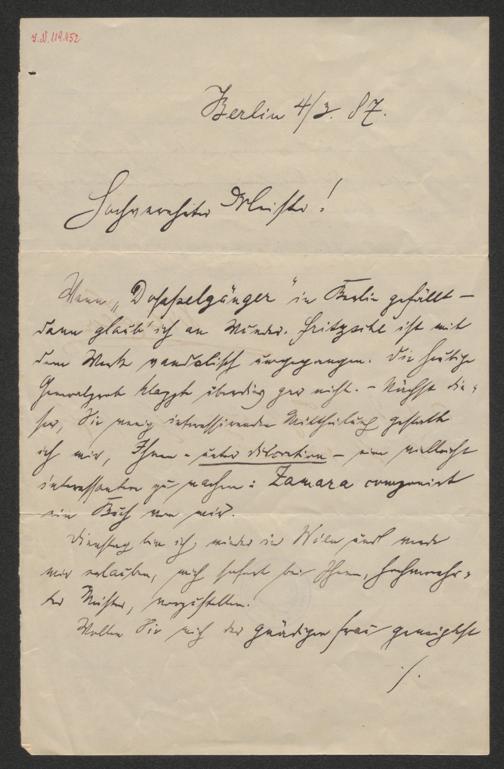 J.N. 119.452
Berlin 4/3. 87.
Hochverehrter Meister!
Wenn „Doppelgänger" in Berlin gefällt –
dann glaub' ich an Wunder. Fritzsche ist mit
dem Werk vandalisch umgegangen. Die heutige
Generalprob klappte überdies gar nicht. – Nächst die-
ser, Sie wenig interessirenden Mittheilung gestatte
ich mir, Ihnen – unter Discretion – eine vielleicht
interessantere zu machen: Zamara componirt
ein Buch von mir.
Dienstag bin ich wieder in Wien und werde
mir erlauben, mich sofort bei Ihnen, hochverehr-
ter Meister, vorzustellen.
Wollen Sie mich der gnädigen Frau geneigtest
./.